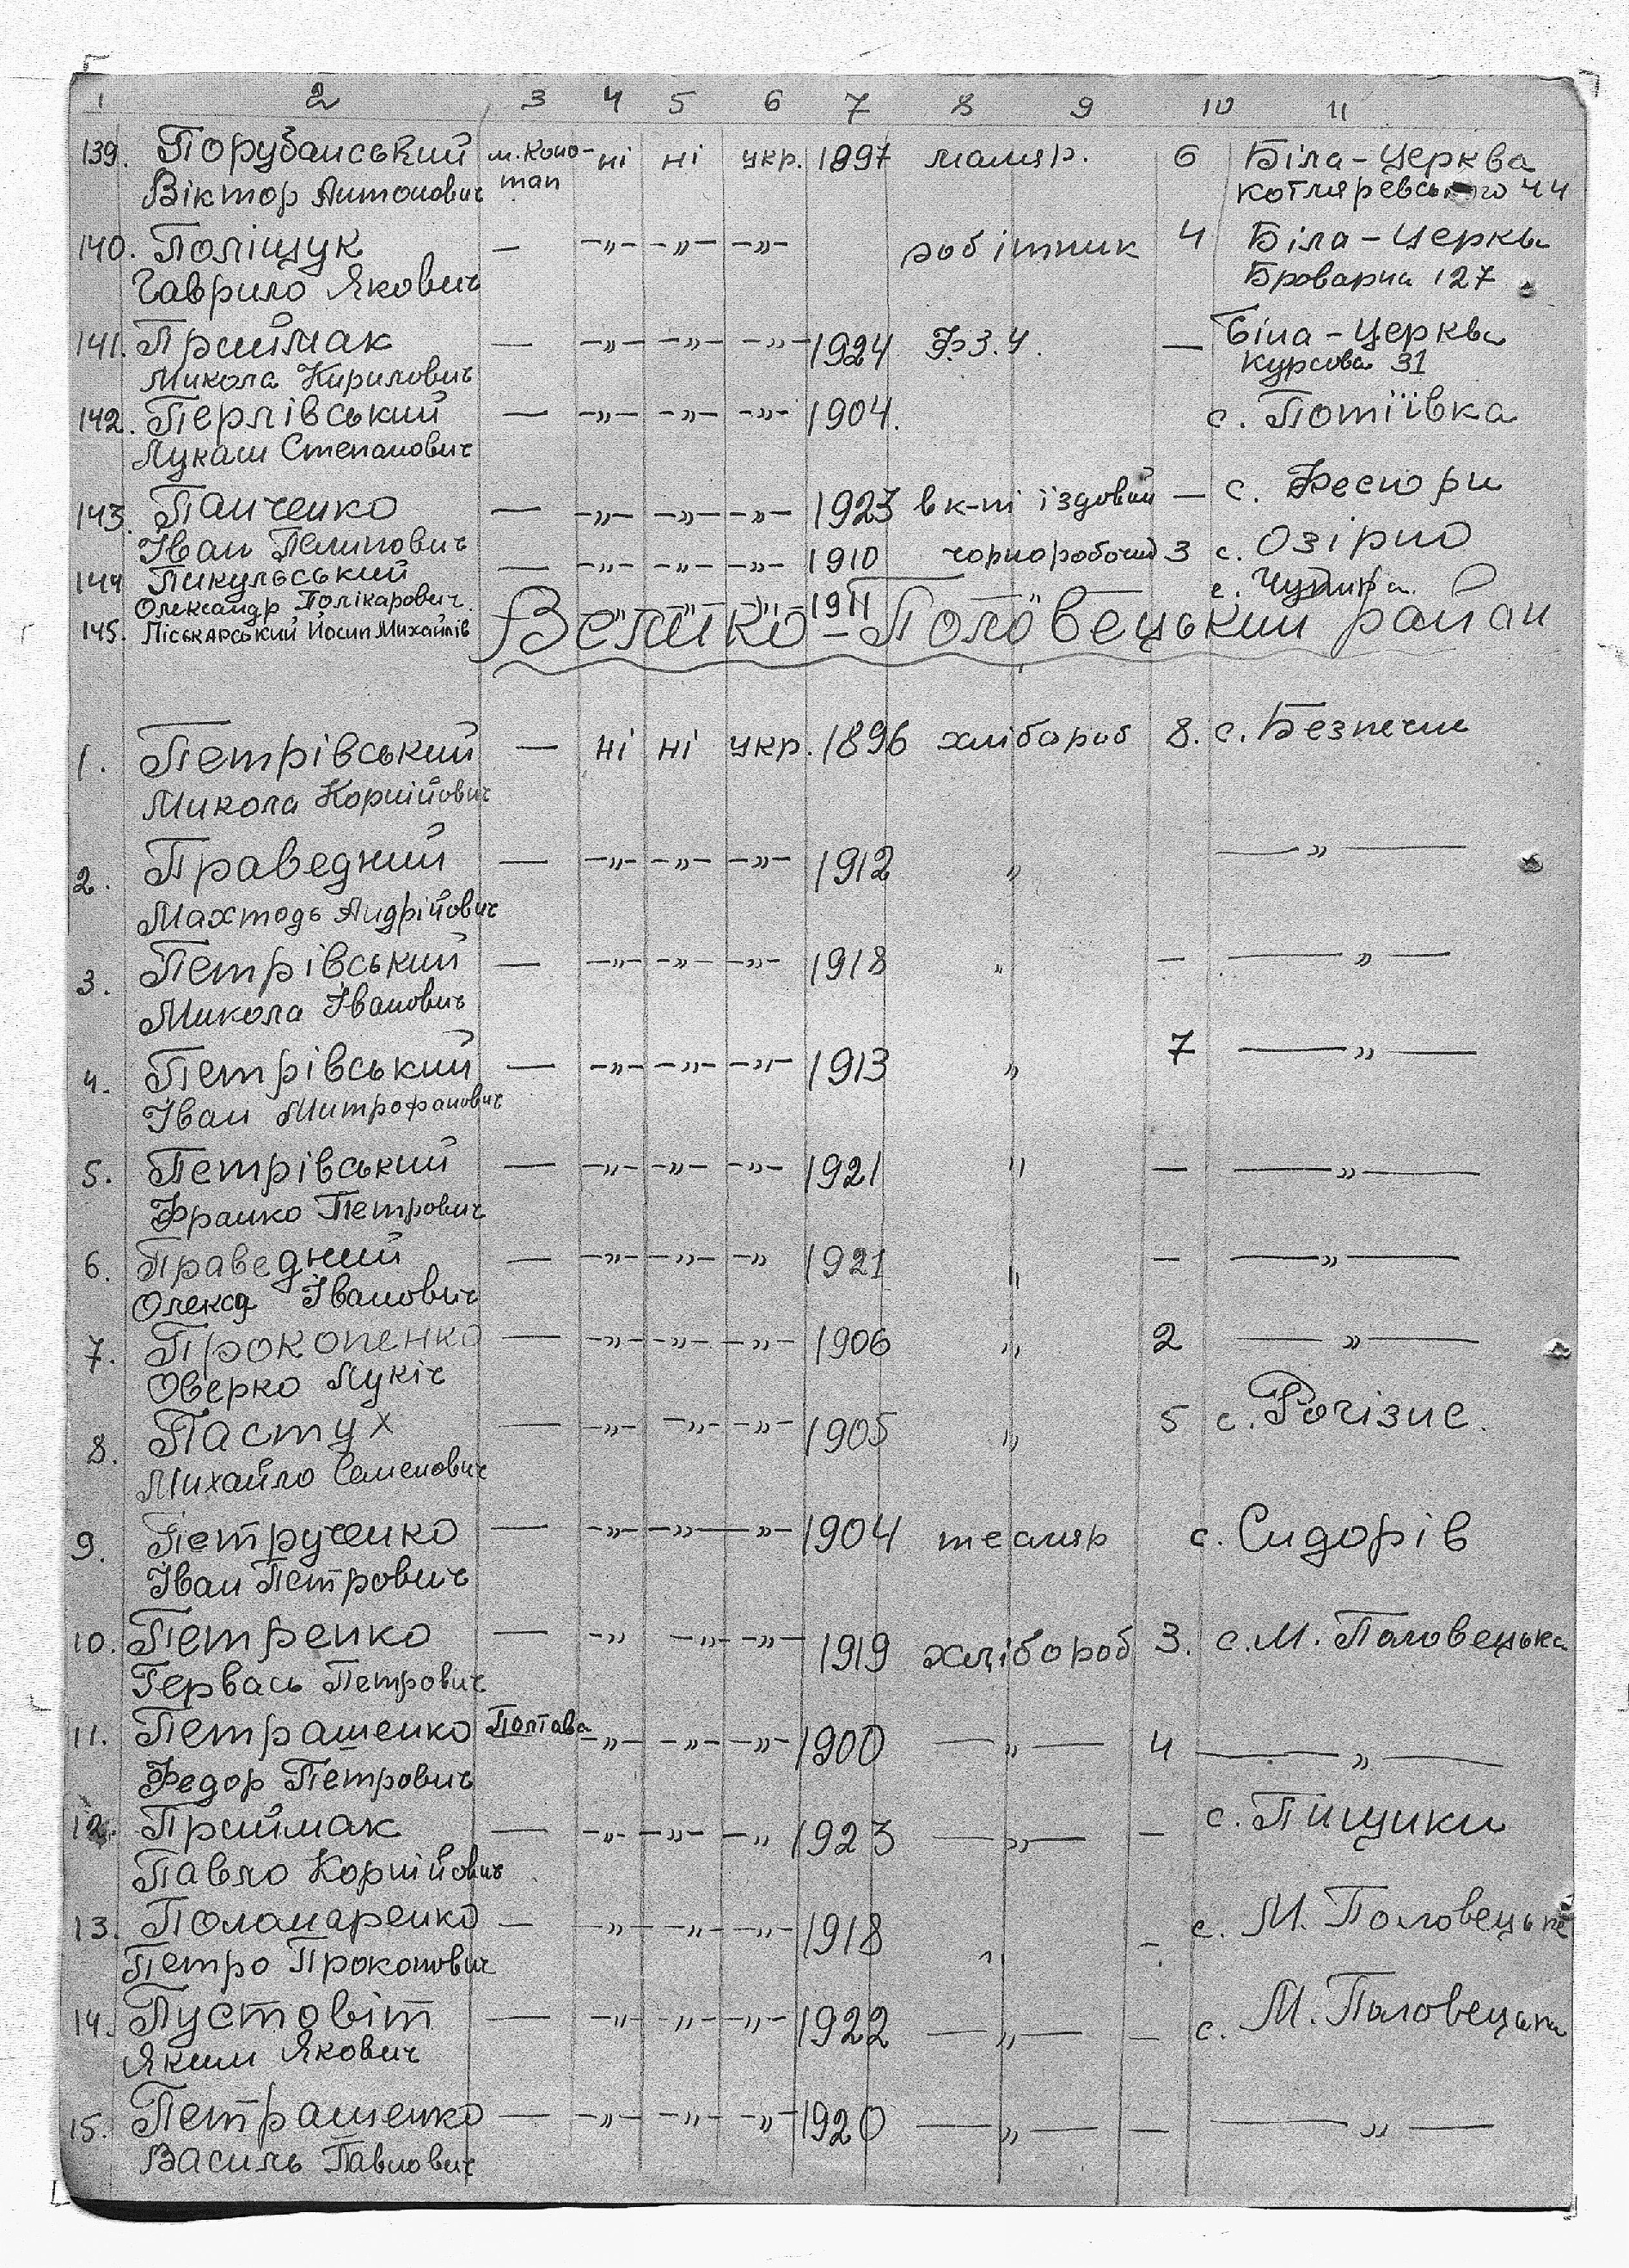 1 2 3 4 5 6 7 8 9 10 11
139. Порубанський м. Коно- ні ні укр. 1897 маляр. 6 Біла-Церква
Віктор Антонович топ Котляревського 44
140. Поліщук — —„— —„— —„— робітник 4 Біла-Церква
Гаврило Якович Броварна 127
141. Приймак — —„— —„— —„— 1924 Ф.З.У. — Біла-Церква
Микола Кирилович Курсова 31
142. Перлівський — —„— —„— —„— 1904. с. Потіївка
Лукаш Степанович
143. Панченко — —„— —„— —„— 1923 в к-пі їздовий — с. Фесюри
Іван Пелипович
144 Пикульський — —„— —„— —„— 1910 чорноробочий 3 с. Озірно
Олександр Полікарович.
145. Піськарський Йосип Михайлів „ „ „ 1911 „ с.
Велико-Половецький район
1. Петрівський — ні ні укр. 1896 хлібароб 8. с. Безпечне
Микола Корнійович
2. Праведний — —„— —„— —„— 1912 „ —„—
Махтодь Андрійович
3. Петрівський — —„— —„— —„— 1918 „ — —„—
Микола Іванович
4. Петрівський — —„— —„— —„— 1913 „ 7 —„—
Іван Митрофанович
5. Петрівський — —„— —„— —„— 1921 „ — —„—
Франко Петрович
6. Праведний — —„— —„— —„ 1921 „ — —„—
Олекса Іванович
7. Прокопенко — —„— —„— —„— 1906 „ 2 —„—
Оверко Лукіч
8. Пастух — —„— —„— —„— 1905 „ 5 с. Рогізне.
Михайло Семенович
9. Петрученко — —„— —„— —„— 1904 тесляр с. Сидорів
Іван Петрович
10. Петренко — —„ —„— —„— 1919 хлібороб 3. с. М. Половецька
Гервась Петрович
11. Петрашенко Полтава —„— —„— —„— 1900 —„— 4 —„—
Федор Петрович
12. Приймак — —„— —„— —„ 1923 —„— — с. Пищики
Павло Корнійович
13. Поламаренко — —„— —„— —„— 1918 „ — с. М. Половецьке
Петро Прокопович
14. Пустовіт — —„— —„— —„— 1922 —„— — с. М. Половецьке
Яким Якович
15. Петрашенко — —„— —„— —„— 1920 —„— — —„—
Василь Павлович